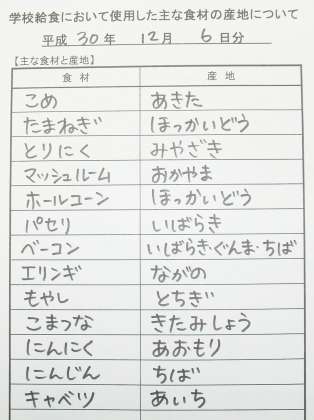 学校給食において使用した主な食材の産地について
平成 30 年 12月 6 日分
【主な食材と産地】
食 材 産 地
こめ あきた
たまねぎ ほっかいどう
とりにく みやざき
マッシュルーム おかやま
ホールコーン ほっかいどう
パセリ いばらき
ベーコン いばらき・ぐんま・ちば
エリンギ ながの
もやし とちぎ
こまつな きたみしょう
にんにく あおもり
にんじん ちば
キャベツ あいち